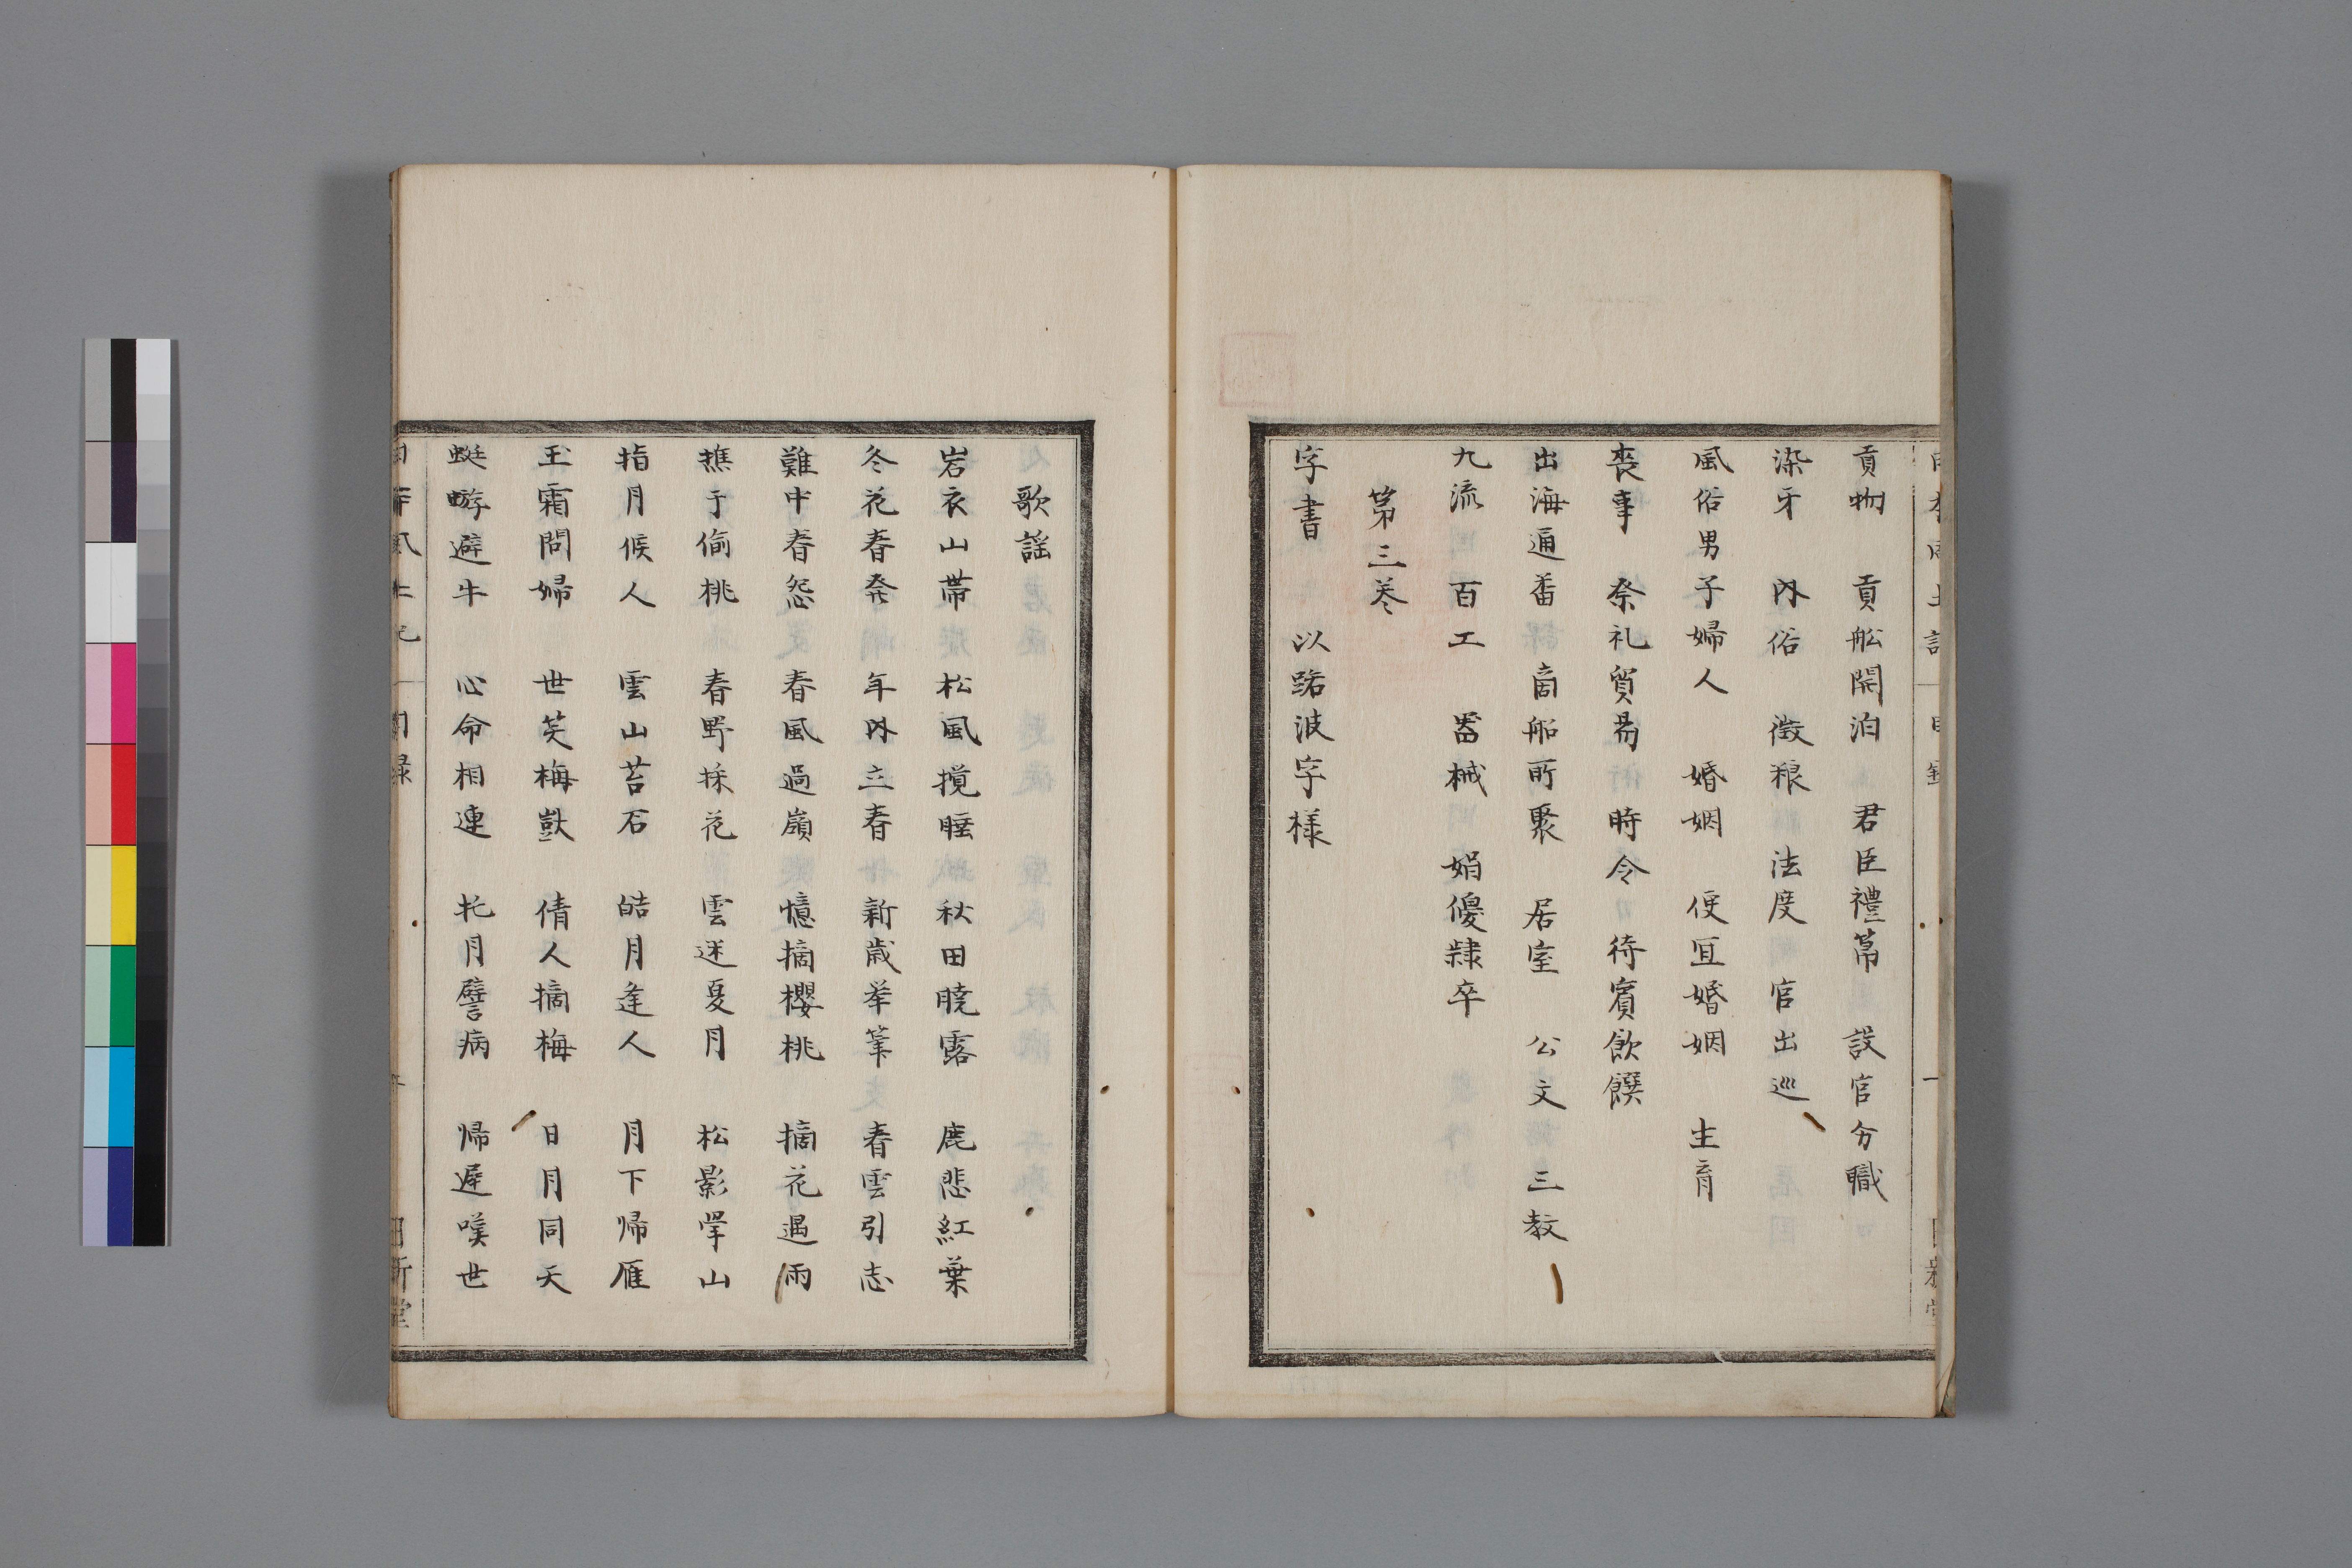 貢物　貢舩開泊　君臣禮節　設官分職
染牙　内俗　徴粮　法度　官出巡
風俗男子婦人　婚姻　便宜婚姻　生育
喪事　祭礼貿易　時令　待賓飲饌
出海通番　商船所聚　居室　公文　三教
九流　百工　器械　娼優隷卒
第三巻
字書　以路波字様
歌謡
岩衣山帯　松風攪睡　秋田曉露　鹿悲紅葉
冬花春発　年内立春　新歳举筆　春雲引志
難中春怨　春風過嶺　憶摘櫻桃　摘花遇雨
樵于偷桃　春野採花　雲迷夏月　松影学山
指月候人　雲山苔石　皓月逢人　月下帰雁
玉霜問婦　世笑梅獃　倩人摘梅　日月同天
蜓蝣避牛　心命相連　托月譬病　帰遲嘆世